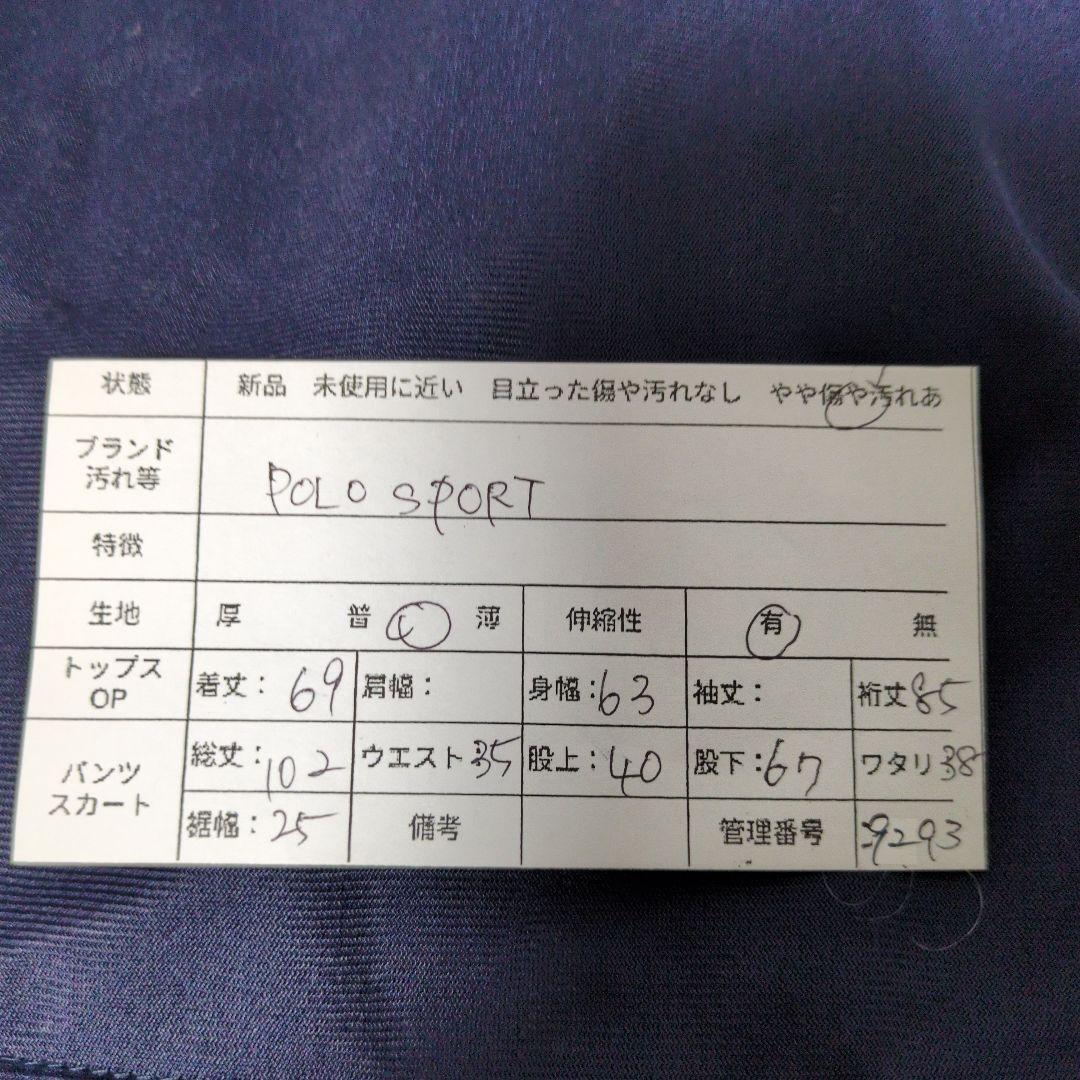 状態 新品 未使用に近い 目立った傷や汚れなし やや傷や汚れあ
ブランド
汚れ等
POLO SPORT
特徴
生地 厚 普 薄 伸縮性 有 無
トップス
OP
着丈: 69 肩幅: 身幅:63 袖丈: 裄丈85
パンツ
スカート
総丈:102 ウエスト35 股上:40 股下:67 ワタリ38
裾幅:25 備考 管理番号 :9293